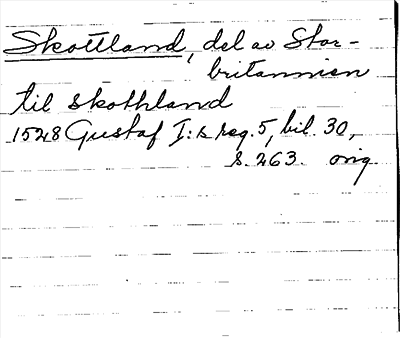 Skottland, del av Stor-
britannien
til skothland
1528 Gustaf I:s reg. 5, bil. 30,
s. 263. orig.